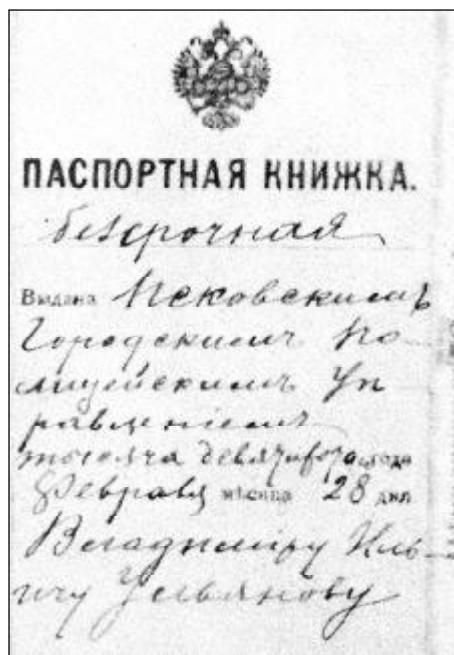 ПАСПОРТНАЯ КНИЖКА.
безсрочная
Выдана Псковскимъ
Городскимъ По-
лицейскимъ Уп
равленіемъ
тысяча девятьсотаго года
Февраля мѣсяца 28 дня
Владиміру Иль-
ичу Ульянову